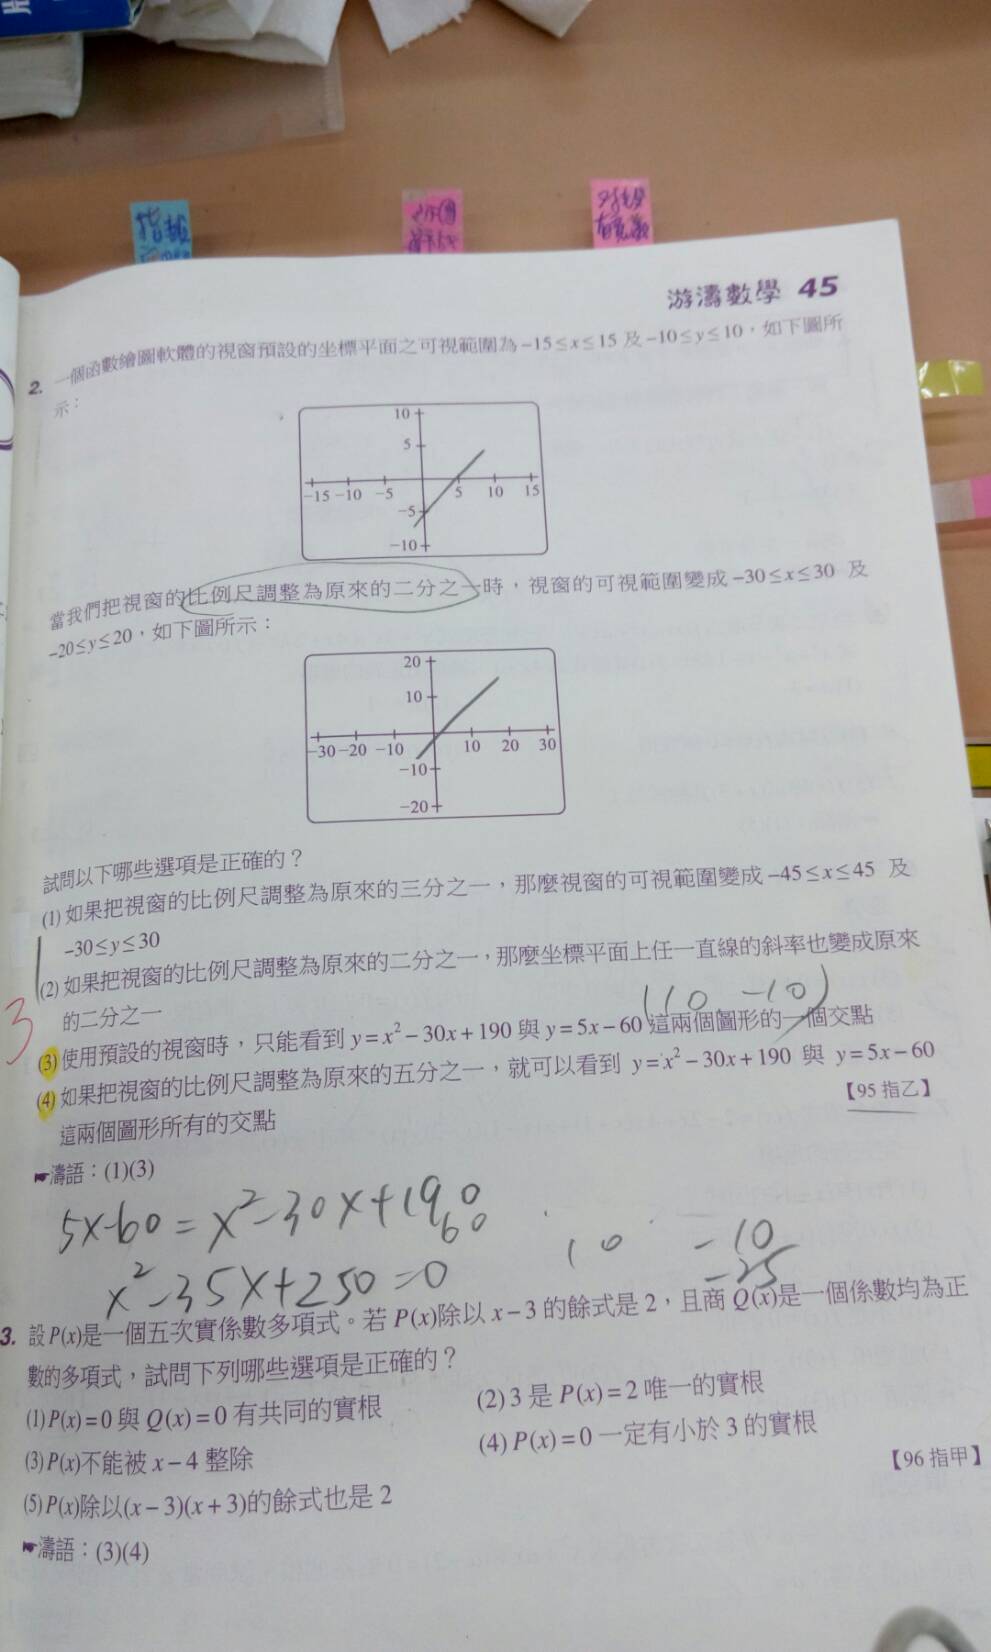 指
游濤數學 45
2. 一個函數繪圖軟體的視窗預設的坐標平面之可視範圍為 -15≤x≤15 及 -10≤y≤10，如下圖所
示：
10
5
-15 -10 -5 5 10 15
-5
-10
當我們把視窗的比例尺調整為原來的二分之一時，視窗的可視範圍變成 -30≤x≤30 及
-20≤y≤20，如下圖所示：
20
10
-30 -20 -10 10 20 30
-10
-20
試問以下哪些選項是正確的？
(1) 如果把視窗的比例尺調整為原來的三分之一，那麼視窗的可視範圍變成 -45≤x≤45 及
-30≤y≤30
(2) 如果把視窗的比例尺調整為原來的二分之一，那麼坐標平面上任一直線的斜率也變成原來
的二分之一
(10 -10)
3
(3) 使用預設的視窗時，只能看到 y=x²-30x+190 與 y=5x-60 這兩個圖形的一個交點
(4) 如果把視窗的比例尺調整為原來的五分之一，就可以看到 y=x²-30x+190 與 y=5x-60
這兩個圖形所有的交點
【95 指乙】
☛濤語：(1)(3)
5x-60=x²-30x+190
60
10 -10
-25
x²-35x+250=0
3. 設 P(x)是一個五次實係數多項式。若 P(x)除以 x-3 的餘式是 2，且商 Q(x)是一個係數均為正
數的多項式，試問下列哪些選項是正確的？
(1) P(x)=0 與 Q(x)=0 有共同的實根
(2) 3 是 P(x)=2 唯一的實根
(3) P(x)不能被 x-4 整除
(4) P(x)=0 一定有小於 3 的實根
(5) P(x)除以(x-3)(x+3)的餘式也是 2
【96 指甲】
☛濤語：(3)(4)